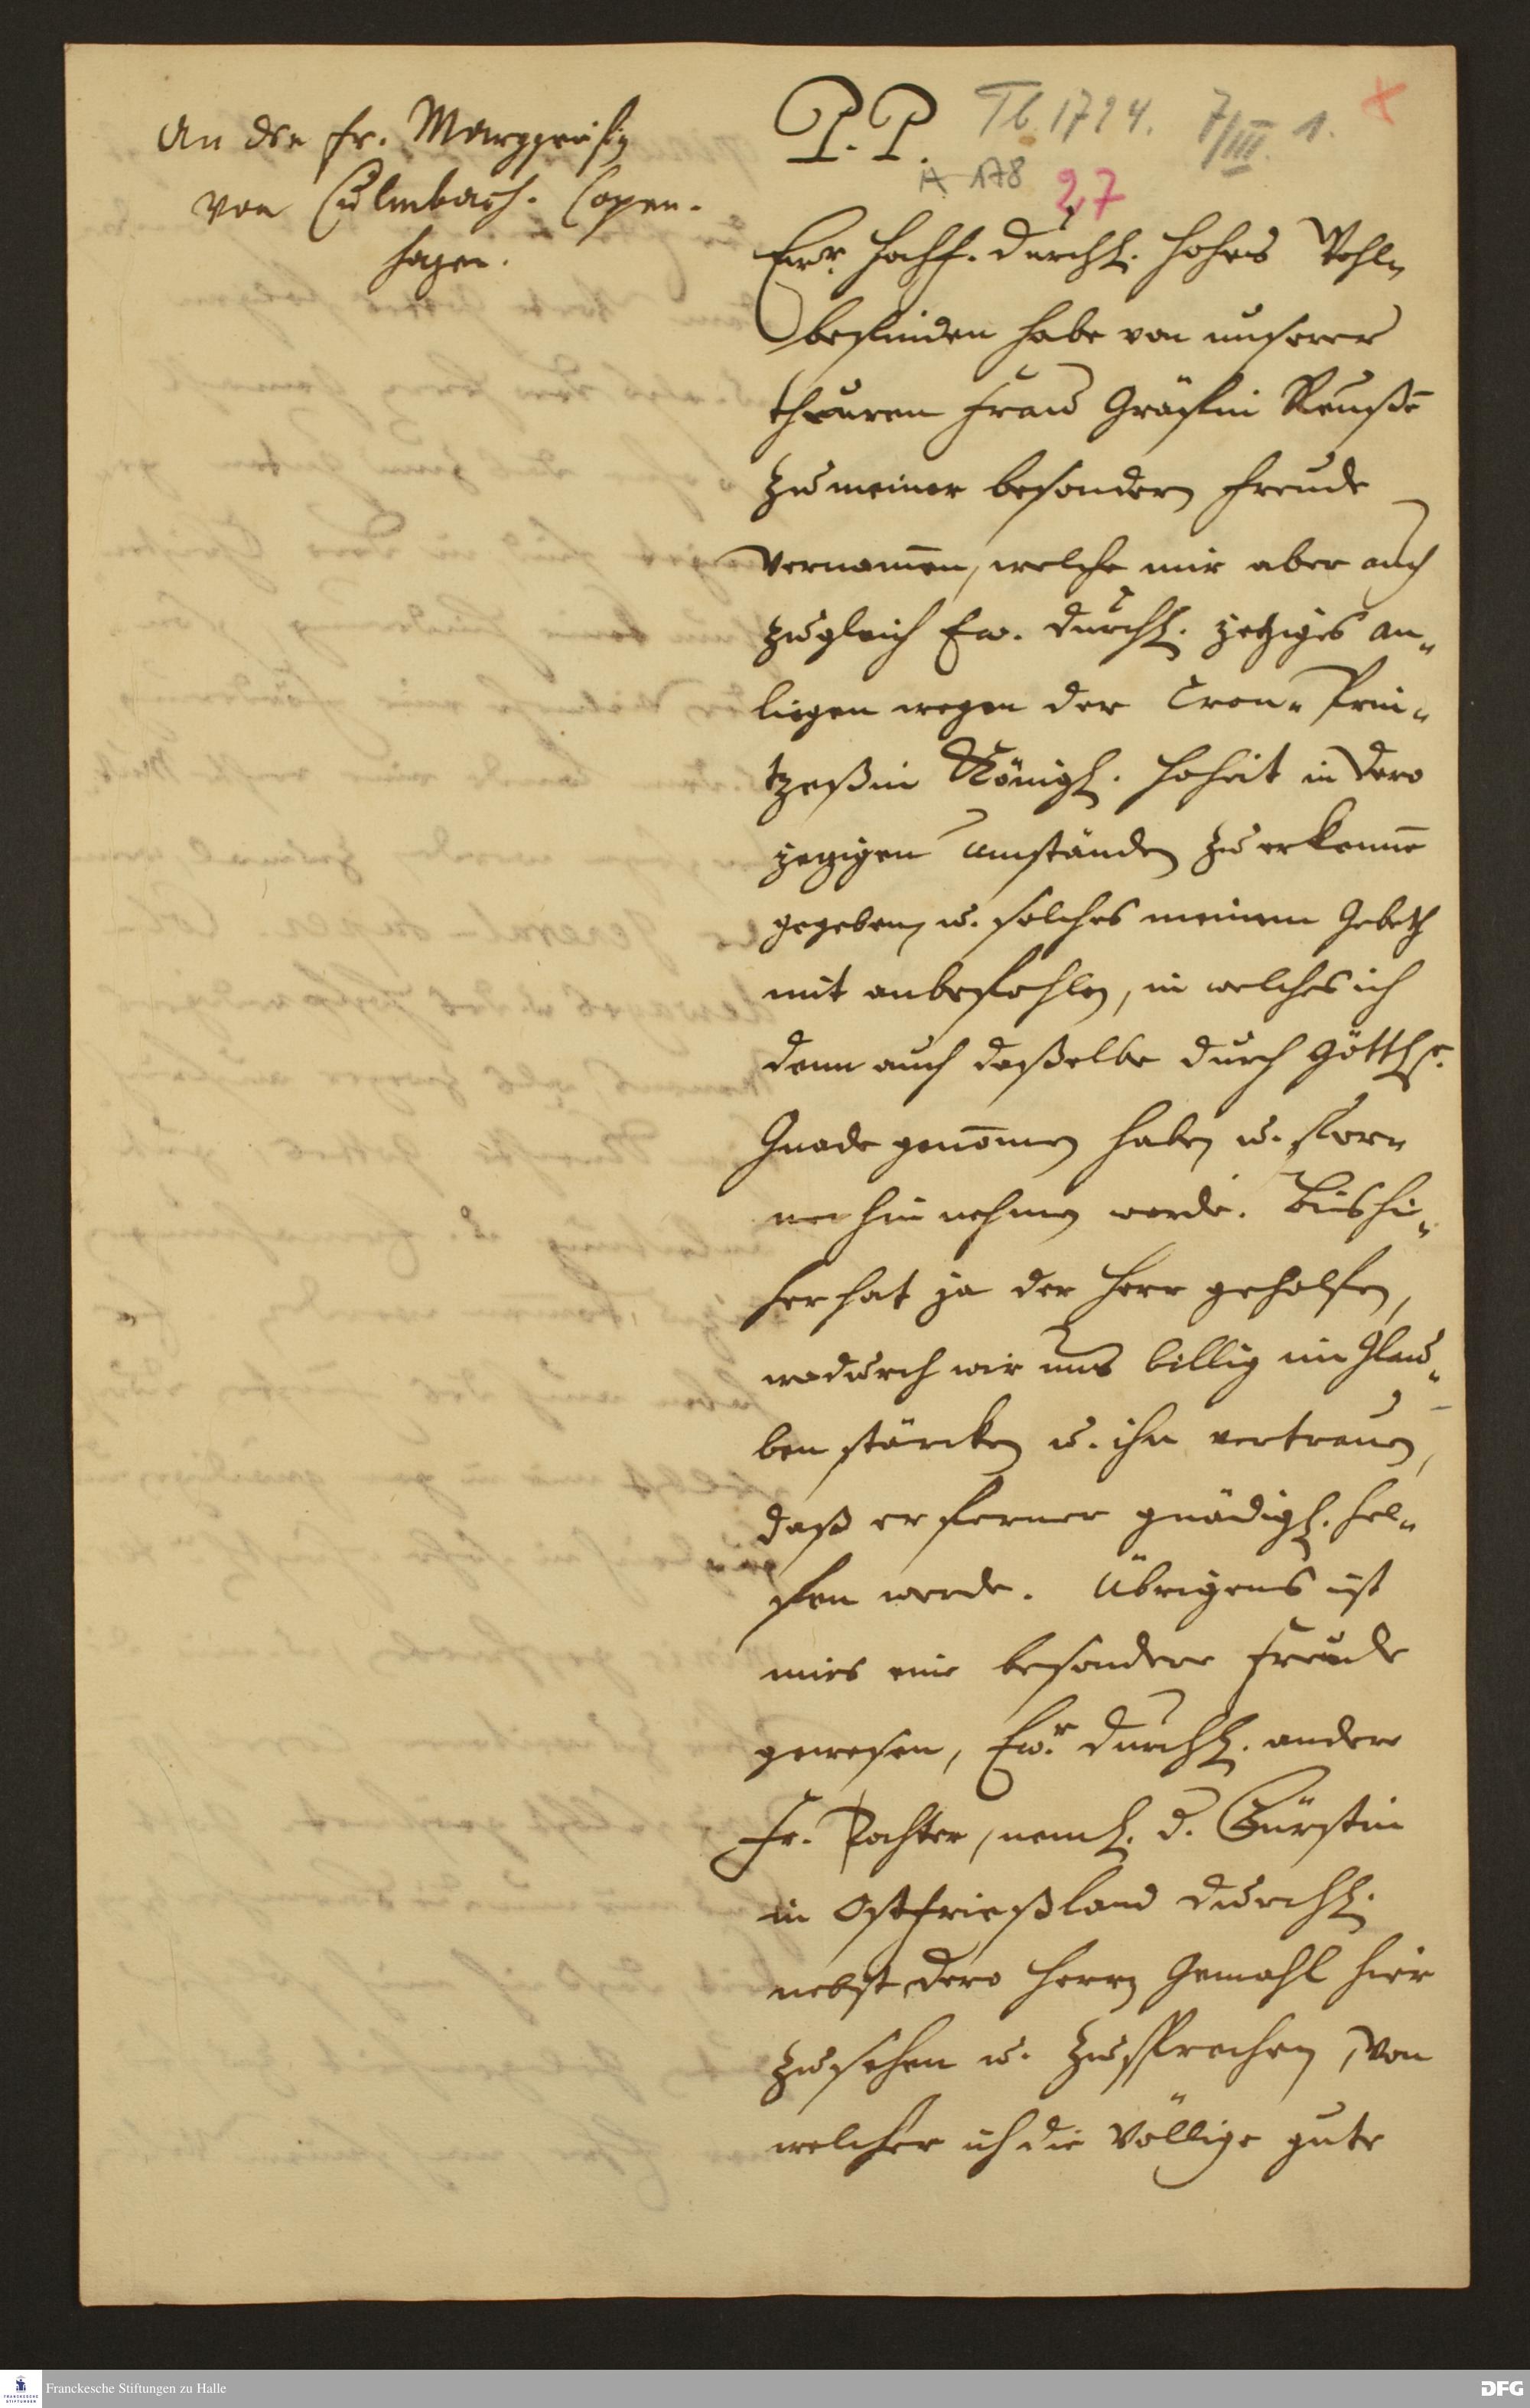 An die Fr. Marggräfin
von Culmbach. Copen-
hagen.
P. P.
Tb. 1724. 7/III. 1.
A 178
27
Ewr. Hochf. Durchl. hohes Wohl-
befinden habe von unserer
theuren Frau Gräfin Reußē
zu meiner besondern Freude
vernom̄en, welche mir aber auch
zugleich Ew. Durchl. jetziges an-
liegen wegen der Cron-Prin-
tzeßin Königl. Hoheit in dero
jetzigen Umständen zu erkennē
gegeben u. solches meinem Gebeth
mit anbefohlen, in welches ich
denn auch daßelbe durch Göttl.
Gnade genom̄en habe u. fer-
ner hin nehmen werde. Bishie-
her hat ja der Herr geholfen,
wodurch wir uns billig im Glau-
ben stärcken u. ihm vertrauen,
daß er ferner gnädigl. hel-
fen werde. Übrigens ist
mirs eine besondere Freude
gewesen, Ewr. Durchl. andere
Fr. Tochter, neml. d. Fürstin
in Ostfrießland Durchl.
nebst dero Herrn Gemahl hier
zu sehen u. zu sprechen, von
welcher ich die völlige gute
Franckesche Stiftungen zu Halle
DFG